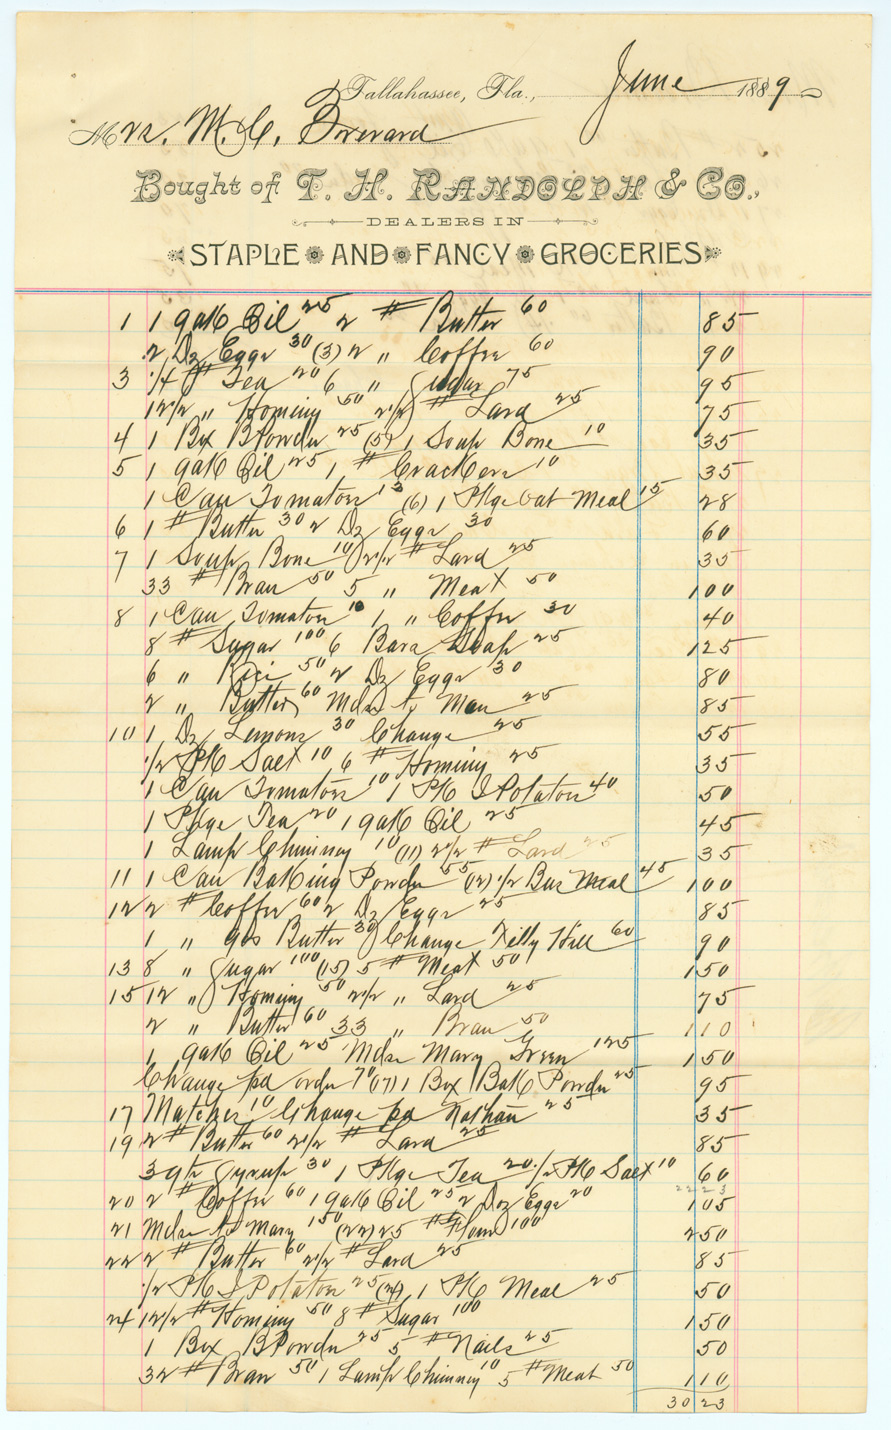 Tallahassee, Fla., June 1889
Mrs. M. C. Brevard
Bought of T. H. RANDOLPH & CO.,
DEALERS IN
STAPLE AND FANCY GROCERIES
1 1 gal K Oil 25 2 # Butter 60 85
2 Dz Eggs 30 (3) 2 " Coffee 60 90
3 1/4 # Tea 20 6 " Sugar 75 95
12 1/2 " Hominy 50 2 1/2 # Lard 25 75
4 1 Box B Powder 25 (5) 1 Soup Bone 10 35
5 1 gal K Oil 25 1 # Crackers 10 35
1 Can Tomatoes 13 (6) 1 Pkge Oat Meal 15 28
6 1 # Butter 30 2 Dz Eggs 30 60
7 1 Soup Bone 10 2 1/2 # Lard 25 35
33 # Bran 50 5 " Meat 50 100
8 1 Can Tomatoes 10 1 " Coffee 30 40
8 # Sugar 100 6 Bars Soap 25 125
6 " Rice 50 2 Dz Eggs 30 80
2 " Butter 60 Mdse to Man 25 85
10 1 Dz Lemons 30 Change 25 55
1/2 PK Salt 10 6 # Hominy 25 35
1 Can Tomatoes 10 1 PK I Potatoes 40 50
1 Pkge Tea 20 1 gal K Oil 25 45
1 Lamp Chimney 10 (11) 2 1/2 # Lard 25 35
11 1 Can Baking Powder 55 (12) 1/2 Bus Meal 45 100
12 2 # Coffee 60 2 Dz Eggs 25 85
1 " Butter 30 Change Kelly Hill 60 90
13 8 " Sugar 100 (15) 5 # Meat 50 150
15 12 " Hominy 50 2 1/2 " Lard 25 75
2 " Butter 60 33 " Bran 50 110
1 gal K Oil 25 Mdse Mary Green 125 150
Change pd order 70 (17) 1 Box Bak Powder 25 95
17 Matches 10 Change pd Nathan 25 35
19 2 # Butter 60 2 1/2 # Lard 25 85
3 qts Syrup 30 1 Pkge Tea 20 1/2 PK Salt 10 60
2223
20 2 # Coffee 60 1 gal K Oil 25 2 Doz Eggs 20 105
21 Mdse to Mary 150 (22) 25 # Flour 100 250
22 2 # Butter 60 2 1/2 # Lard 25 85
1/2 PK I Potatoes 25 (24) 1 PK Meal 25 50
24 12 1/2 # Hominy 50 8 # Sugar 100 150
1 Box B Powder 25 5 # Nails 25 50
32 # Bran 50 1 Lamp Chimney 10 5 # Meat 50 110
30 23